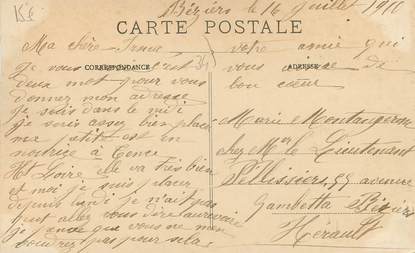 Béziers le 16 juillet 1910
CARTE POSTALE
CORRESPONDANCE
ADRESSE
Ma chère Irma
je vous écrit
deux mot pour vous
donner mon adresse
je suis dans le midi
je suis assez bien placer
ma petite est en
nourice à Tence
H Loire elle va très bien
et moi je suis placer
depuis lundi je n'ait pas
peut allez vous dire aurevoire
je pense que vous ne m'en
voudrez pas pour sela
votre amie qui
vous de
bon cœur
Marie Montagnon
chez Mr le Lieutenant
Pellissiers, 55 avenue
Gambetta Béziers
Hérault